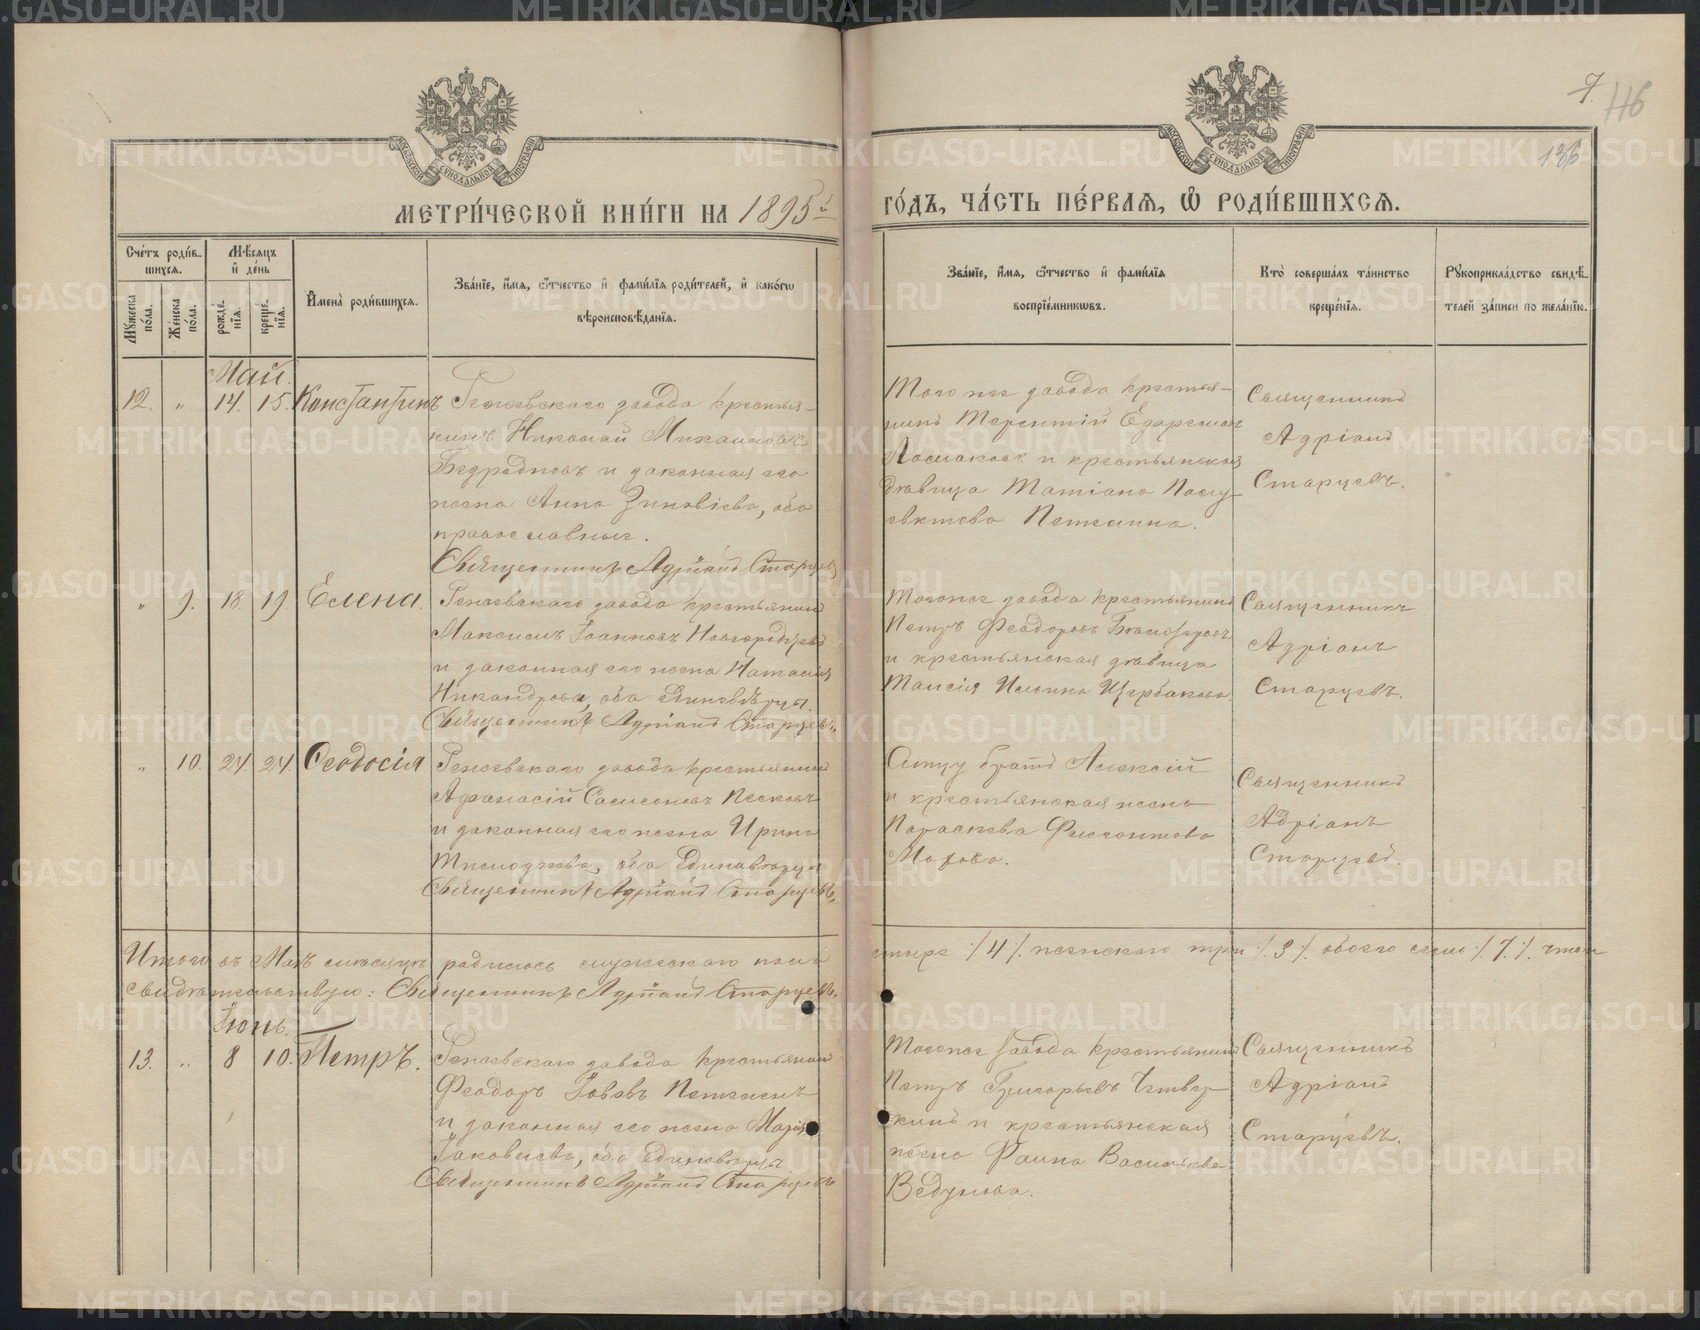 7.
116
136
МОСКОВСКОЙ СѴНОДАЛЬНОЙ ТИПОГРАФІИ
МОСКОВСКОЙ СѴНОДАЛЬНОЙ ТИПОГРАФІИ
МЕТРИ́ЧЕСКОЙ КНИ́ГИ НА 1895й
ГО́ДЪ, ЧА́СТЬ ПЕ́РВАѦ, Ѡ РОДИ́ВШИХСѦ.
Сче́тъ роди́в-
шихся.
Мѣ́сяцъ
и҆ де́нь
Мꙋ́жеска по́ла.
Же́нска по́ла.
рожде́нїя.
креще́нїя.
И҆мена̀ роди́вшихся.
Зва́нїе, и҆́мя, ѻ҆́тчество и҆ фами́лїя роди́телей, и҆ како́гѡ
вѣроисповѣ́данїя.
Зва́нїе, и҆́мя, ѻ҆́тчество и҆ фами́лїя
воспрїе́мникѡвъ.
Кто̀ соверша́лъ та́инство
креще́нїя.
Рꙋкоприкла́дство свидѣ́-
телей за́писи по жела́нїю.
Май.
12. " 14. 15. Константинъ
Режевскаго завода крестья-
нинъ Николай Михаиловъ
Бедрадновъ и законная его
жена Анна Зиновіева, оба
православные.
Священникъ Адріанъ Старцевъ
Тогоже завода крестья-
нинъ Терентій Ефремовъ
и крестьянская
дѣвица Татіана
Петелина.
Священникъ
Адріанъ
Старцевъ.
" 9. 18. 19. Елена.
Режевскаго завода крестьянинъ
Максимъ Іоанновъ
и законная его жена Наталія
Никандрова, оба единовѣрцы.
Священникъ Адріанъ Старцевъ.
Тогоже завода крестьянинъ
Петръ Феодоровъ
и крестьянская дѣвица
Таисія Ильина Щербакова
Священникъ
Адріанъ
Старцевъ.
" 10. 24. 24. Ѳеодосія
Режевскаго завода крестьянинъ
Афанасій Самсоновъ Песковъ
и законная его жена Ирина
оба Единовѣрцы
Священникъ Адріанъ Старцевъ.
Отцу братъ Алексій
и крестьянская жена
Параскева
Мохова.
Священникъ
Адріанъ
Старцевъ.
Итого въ Маѣ мѣсяцѣ родилось мужескаго пола
четыре /4/, женскаго три /3/, обоего семь /7/. въ томъ
свидѣтельствую: Священникъ Адріанъ Старцевъ.
Іюнь.
13. " 8 10. Петръ.
Режевскаго завода крестьянинъ
Феодоръ Іовевъ Петелинъ
и законная его жена Марія
Іаковлева, оба единовѣрцы
Священникъ Адріанъ Старцевъ
Тогоже завода крестьянинъ
Петръ Григорьевъ Четвер-
кинъ и крестьянская
жена Фаина Васильева
Ведунова.
Священникъ
Адріанъ
Старцевъ.
METRIKI.GASO-URAL.RU